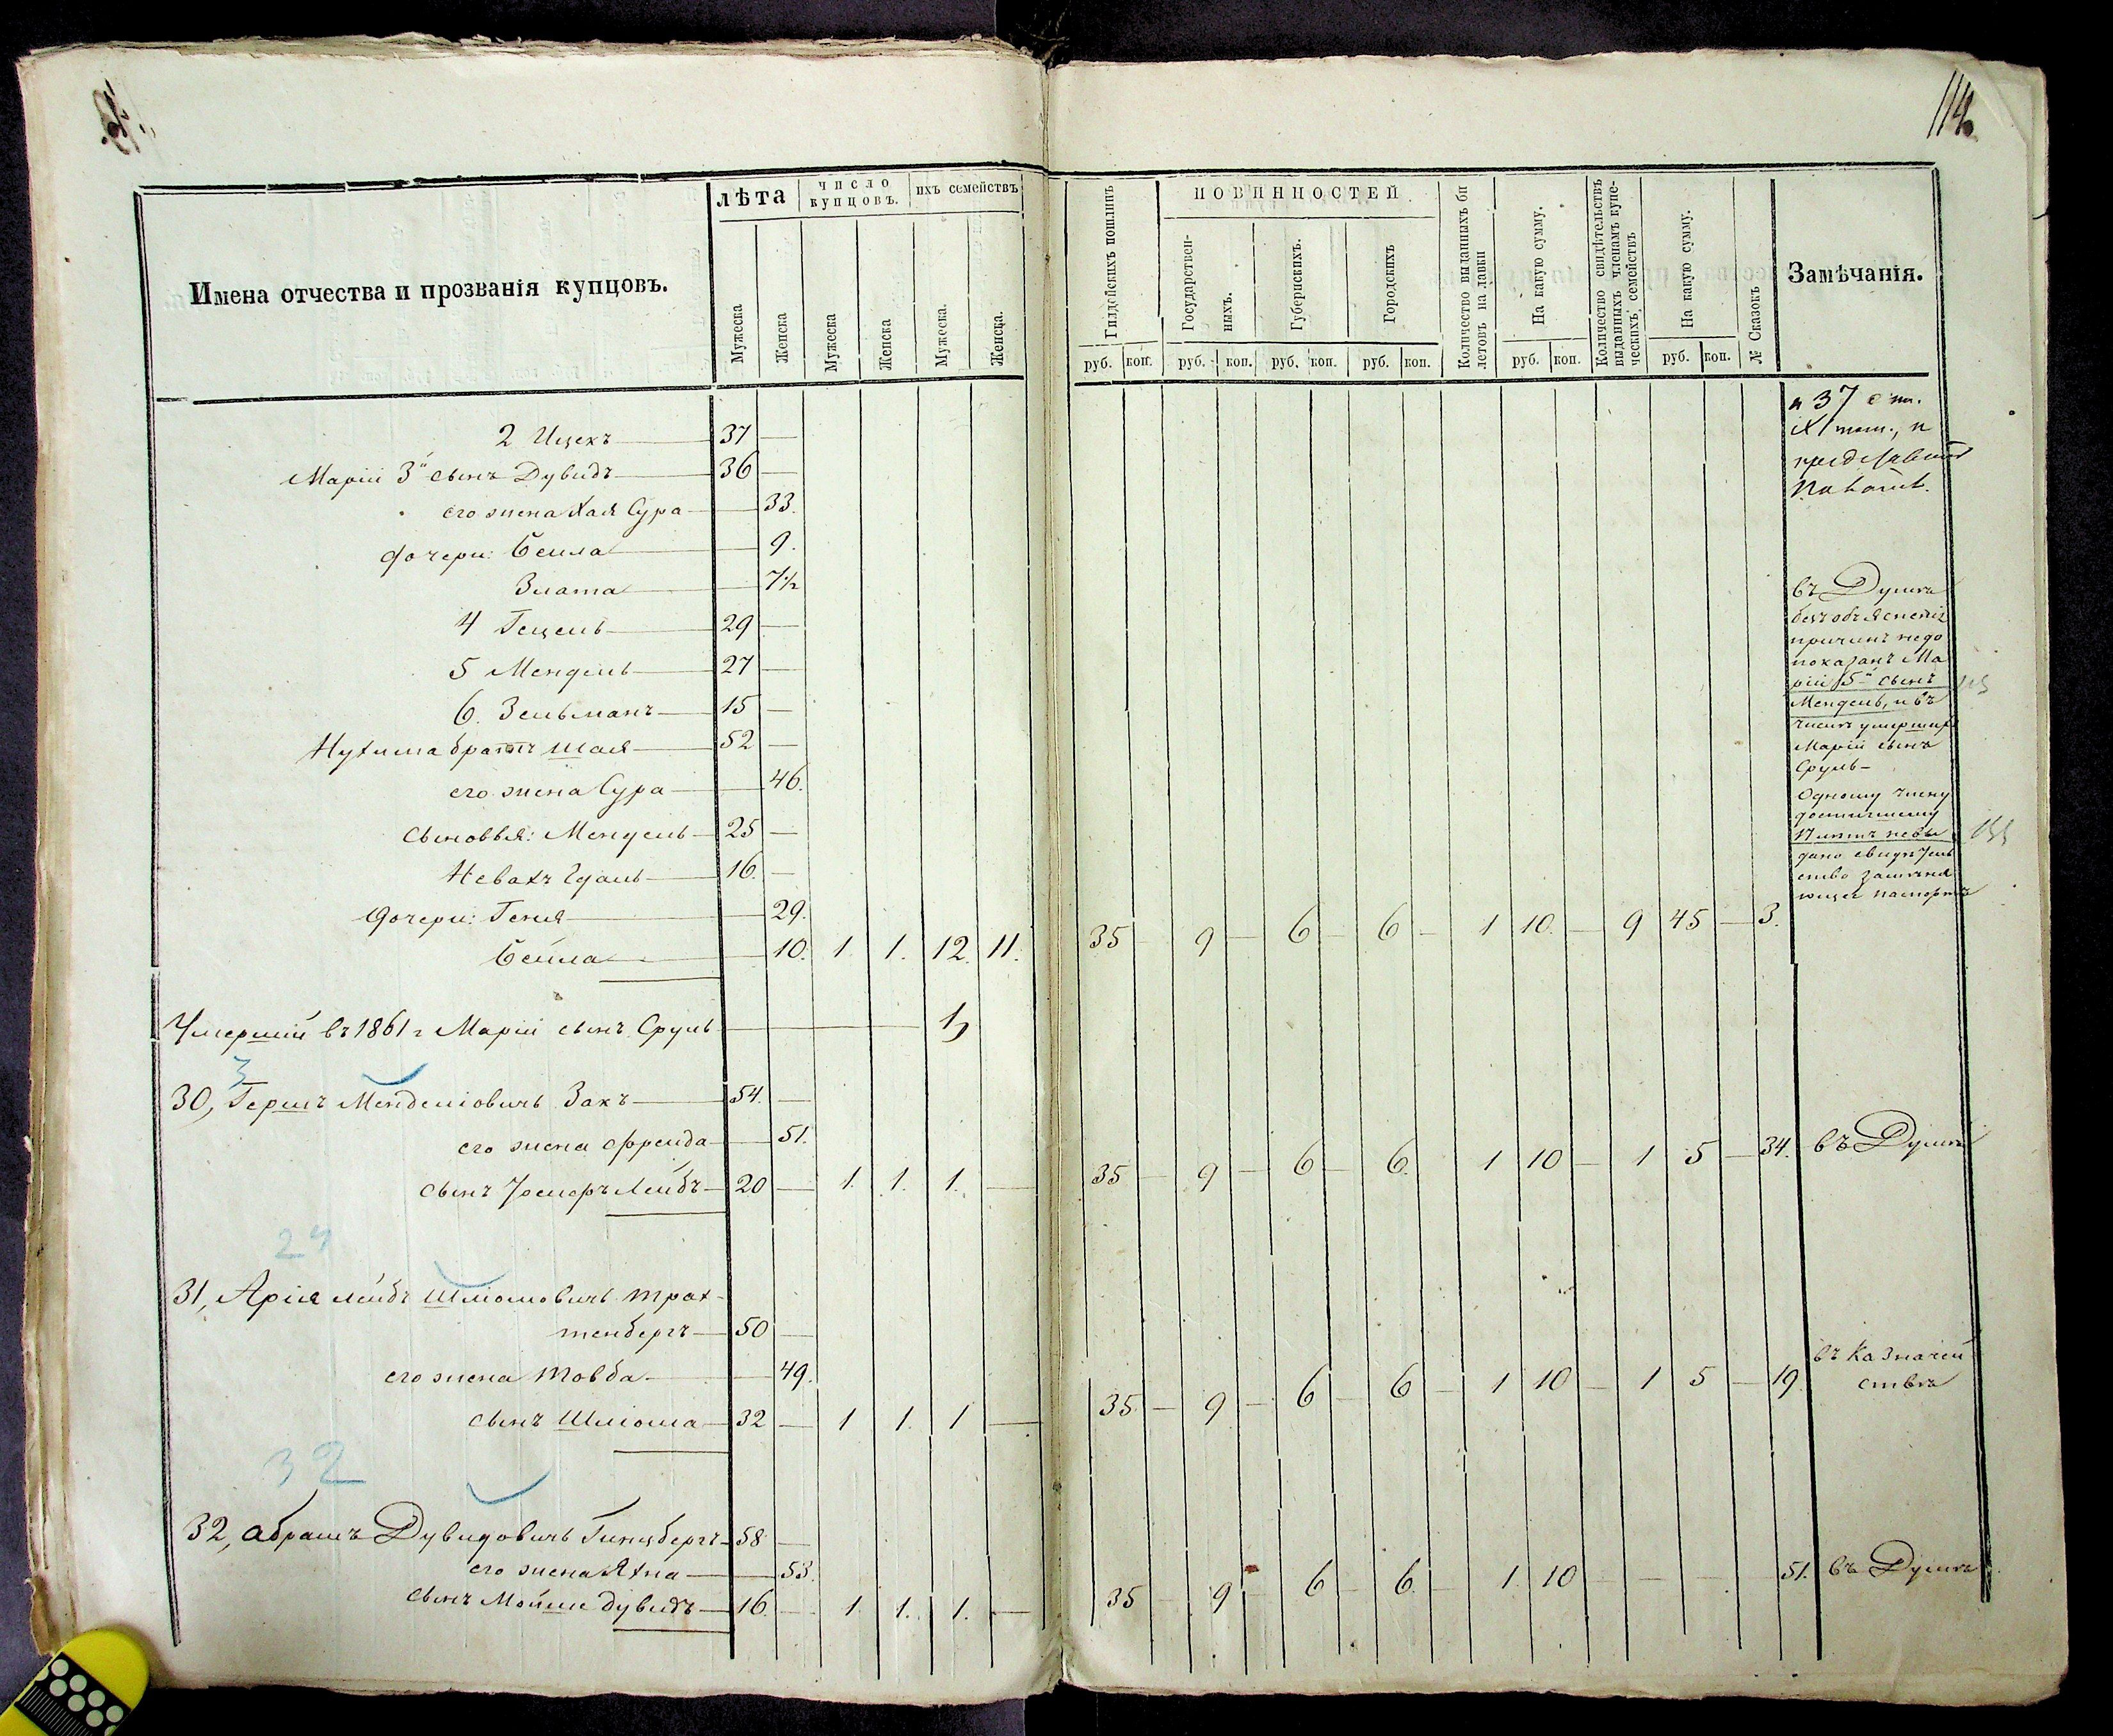 114
Имена отчества и прозванія купцовъ.
лѣта
число купцовъ.
ихъ семействъ
Мужеска
Женска
Мужеска
Женска
Мужеска.
Женска.
Гилдейскихъ пошлинъ
ПОВИННОСТЕЙ
Государствен-
ныхъ.
Губернскихъ.
Городскихъ
Количество выданныхъ би
летовъ на лавки
На какую сумму.
Количество свидѣтельствъ
выданныхъ членамъ купе-
ческихъ семействъ
На какую сумму.
№ Сказокъ
Замѣчанія.
руб. коп. руб. коп. руб. коп. руб. коп. руб. коп. руб. коп.
2 Ицекъ — 37 —
Марiи 3й сынъ Дувидъ — 36 —
его жена Хая Сура — 33.
дочери: Бейла — 9.
Злата — 7½
4 Гецель — 29 —
5 Мендель — 27 —
6. Зельманъ — 15 —
Нухима братъ Шая — 52 —
его жена Сура — 46.
сыновья: Мендель — 25 —
16. —
дочери: Геня — 29.
Бейла — 10. 1. 1. 12. 11. 35 — 9 — 6 — 6 — 1 10. — 9 45 — 3.
и 37 ст.
IX том., и
Въ Думѣ
безъ объясненія
причинъ недо
показанъ Ма
рiи 5й сынъ
Мендель, и въ
числѣ умершихъ
Марiи сынъ
Сруль —
Одному члену
достигшему
17 лѣтъ невы
дано свидѣтель
ство
Умершiй въ 1861 г Марiи сынъ Сруль — 1,
3
30, Гершъ Менделiовичъ Закъ — 54. —
его жена Фрейда — 51.
сынъ Лейбъ — 20 — 1. 1. 1. — 35 — 9 — 6 — 6. 1 10 — 1 5 — 34. въ Думѣ
24
31, Арiя Лейбъ Шлiомовичъ Трах-
тенбергъ — 50 —
его жена Товба — 49.
сынъ Шлiома — 32 — 1 1. 1 — 35 — 9 — 6 — 6 — 1 10 — 1 5 — 19. въ Казначей
ствѣ
32
32, Абрамъ Дувидовичъ Гинцбергъ — 58 —
его жена Яхна — 53.
сынъ Мойше Дувидъ — 16. — 1. 1. 1. — 35 — 9 — 6 — 6. — 1. 10 — — — — 51. въ Думѣ